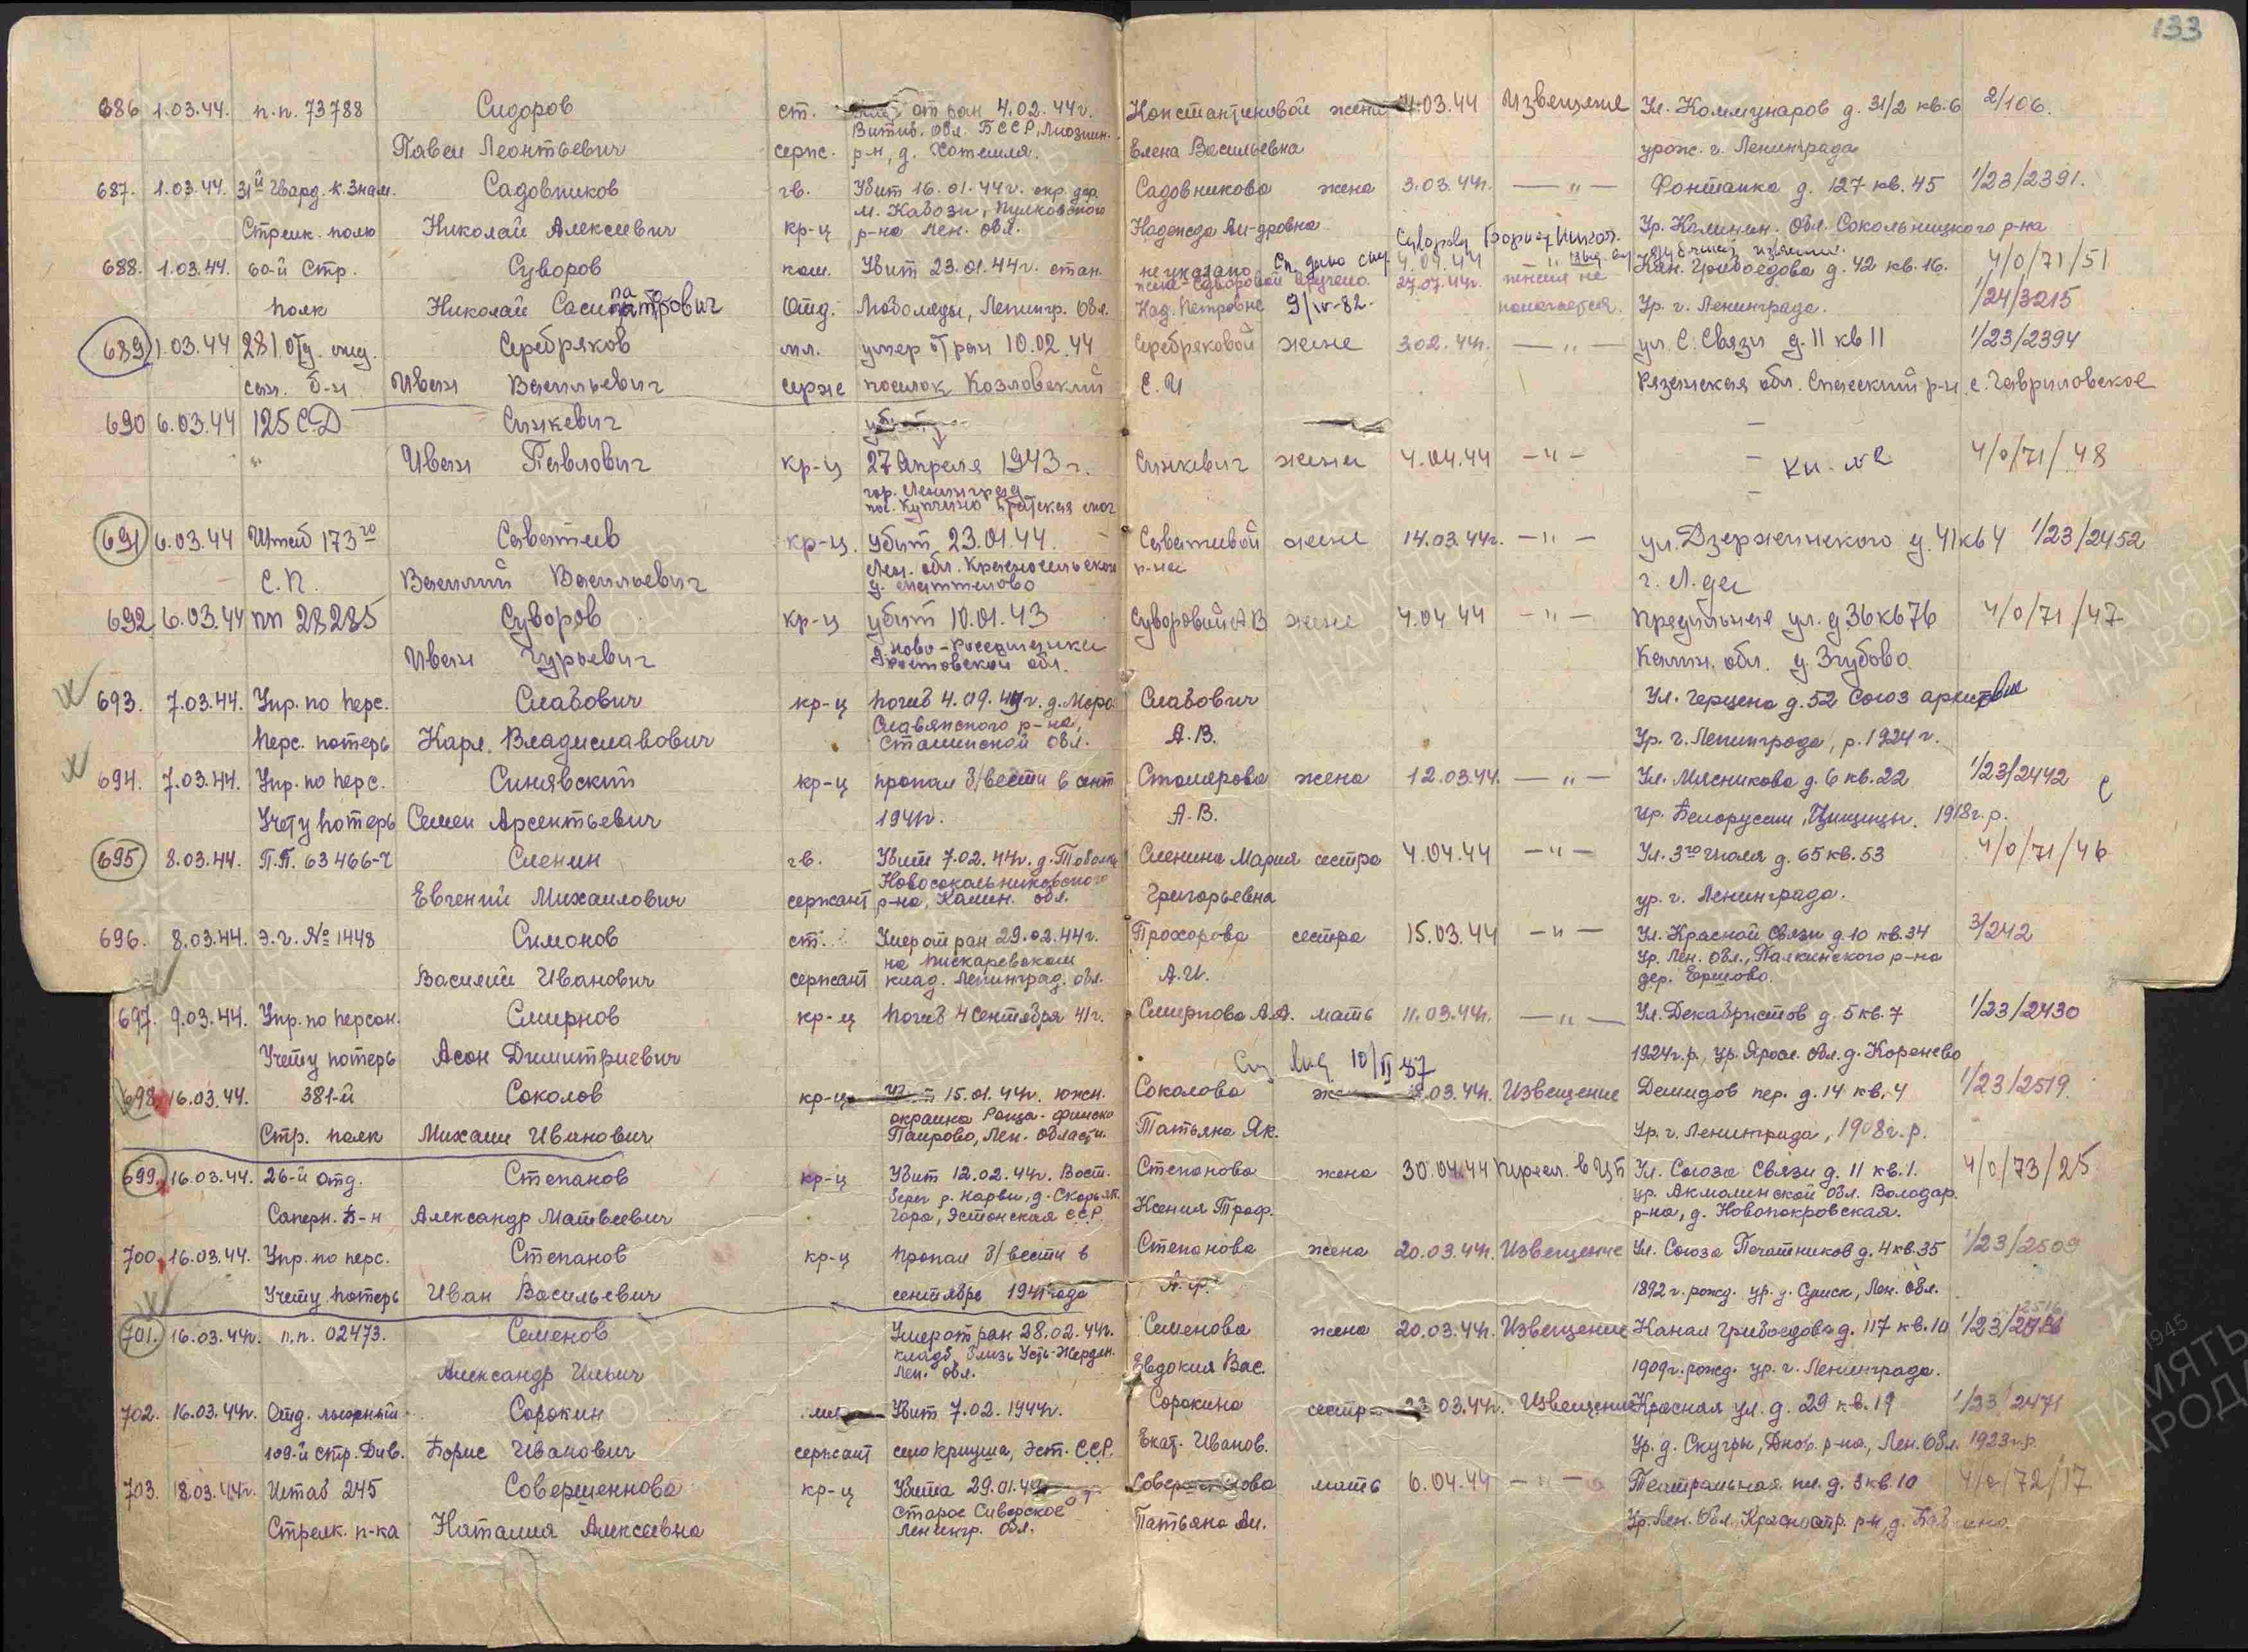 133
686 1.03.44. п.п. 73788 Сидоров ст. от ран 4.02.44г. Константиновой жена 4.03.44 Извещение Ул. Коммунаров д. 31/2 кв. 6 2/106.
Витеб. обл. БССР, Лиознин.
Павел Леонтьевич серж. р-н, д. Хотемля. Елена Васильевна урож. г. Ленинграда
687. 1.03.44. 31й Гвард. К. Знам. Садовников гв. Убит 16.01.44г. окр. дер. Садовникова жена 3.03.44г. — " — Фонтанка д. 127 кв. 45 1/23/2391.
М. Кабози, Пулковского
Стрелк. полк Николай Алексеевич кр-ц р-на Лен. обл. Надежда Ал-дровна Ур. Калинин. Обл. Сокольницкого р-на
Суворову
688. 1.03.44. 60-й Стр. Суворов ком. Убит 23.01.44г. стан. не указано 4.04.44 — " — Кан. Грибоедова д. 42 кв. 16. 4/0/71/51
жене Суворовой вручено 27.07.44г. пенсия не
полк Николай Сосипатрович Отд. Люболяды, Ленингр. Обл. Над. Петровне 9/IV-82. полагается. Ур. г. Ленинграда. 1/24/3215
689 1.03.44 281 отд. Серебряков мл. умер от ран 10.02.44 Серебряковой жене 3.02.44г. — " — ул. С. Связи д. 11 кв 11 1/23/2394
сап. б-н Иван Васильевич серж поселок Козловский С. И Рязанская обл. Спасский р-н с. Гавриловское
690 6.03.44 125 С.Д Синкевич убит
" Иван Павлович кр-ц 27 Апреля 1943 г. Синкевич жена 4.04.44 — " — 4/0/71/48
гор. Ленинград
пос. Купчино братская мог
691 6.03.44 Штаб 173го Саватеев кр-ц. убит 23.01.44. Саватеевой жене 14.03.44г. — " — ул. Дзержинского д. 41 кв 4 1/23/2452
Лен. обл. Красносельском р-на
С.П. Василий Васильевич д. г. Л.да
692 6.03.44 пп 28285 Суворов кр-ц убит 10.01.43 Суворовой А В жене 4.04 44 — " — Прядильная ул. д 36 кв 76 4/0/71/47
Иван Гурьевич Ростовской обл. Калин. обл. д. Згубово.
693. 7.03.44. Упр. по Перс. Славович кр-ц погиб 4.09. Славович Ул. Герцена д. 52 Союз
Славянского р-на,
Перс. потерь Карл Владиславович Сталинской обл. А.В. Ур. г. Ленинграда, р. 1924 г.
694. 7.03.44. Упр. по Перс. Синявский кр-ц пропал б/вести в сент Столярова жена 12.03.44. — " — Ул. Мясникова д. 6 кв. 22 1/23/2442
Учету потерь Семен Арсентьевич 1941г. А.В. ур. Белоруссии 1918г.р.
695 8.03.44. П.П. 63466-Ч Сленин гв. Убит 7.02.44г. Сленина Мария сестра 4.04.44 — " — Ул. 3го Июля д. 65 кв. 53 4/0/71/46
Новосокольниковского
Евгений Михайлович сержант р-на, Калин. обл. Григорьевна ур. г. Ленинграда.
696. 8.03.44. Э.г. № 1448 Симонов ст. Умер от ран 29.02.44г. Прохорова сестра 15.03.44 — " — Ул. Красной Связи д. 10 кв. 34 3/242
на Пискаревском Ур. Лен. обл., Палкинского р-на
Василий Иванович сержант клад. Ленинград. обл. А.И. дер. Ершово.
697. 9.03.44. Упр. по Персон. Смирнов кр-ц погиб 4 Сентября 41г. Смирнова А.А. мать 11.03.44г. — " — Ул. Декабристов д. 5 кв. 7 1/23/2430
Учету потерь Асон Димитриевич 1924г.р., ур. Яросл. обл. д. Коренево
10/II 87
698. 16.03.44. 381-й Соколов кр-ц 15.01.44г. южн. Соколова 03.44г. Извещение Демидов пер. д. 14 кв. 4 1/23/2519.
окраина Роща-Финско
Стр. полк Михаил Иванович Паирово, Лен. области. Татьяна Як. Ур. г. Ленинграда, 1908г.р.
699. 16.03.44. 26-й отд. Степанов кр-ц Убит 12.02.44г. Вост. Степанова жена 30.04.44 Ул. Союза Связи д. 11 кв. 1. 4/0/73/25
берег р. Нарвы, д. ур. Акмолинской обл. Володар.
Саперн. Б-н Александр Матвеевич Гора, Эстонская ССР. Ксения Троф. р-на, д. Новопокровская.
700. 16.03.44. Упр. по перс. Степанов кр-ц пропал б/вести в Степанова жена 20.03.44г. Извещение Ул. Союза Печатников д. 4 кв. 35 1/23/2509
Учету потерь Иван Васильевич сентябре 1941 года А.Ф. 1892 г. рожд. ур. д. Лен. обл.
701. 16.03.44г. п.п. 02473. Семенов Умер от ран 28.02.44г. Семенова жена 20.03.44г. Извещение Канал Грибоедова д. 117 кв. 10 1/23/
кладб. близ Усть-Жердян.
Александр Ильич Лен. обл. Евдокия Вас. 1909г. рожд. ур. г. Ленинграда.
702. 16.03.44г. Отд. лыжный Сорокин Убит 7.02.1944г. Сорокина сестра 23.03.44г. Извещение Красная ул. д. 29 кв. 19 1/23/2471
109-й стр. Див. Борис Иванович сержант село Криуша, Эст. ССР. Екат. Иванов. Ур. д. Скугры, Днов. р-на, Лен. Обл. 1923г.р.
703. 18.03.44г. Штаб 245 Совершеннова кр-ц Убита 29.01.44 Совершеннова мать 6.04.44 — " — Театральная пл. д. 3 кв. 10 4/0/72/17
Старое Сиверское
Стрелк. п-ка Наталия Алексеевна Ленингр. обл. Татьяна Ал. Ур. Лен. Обл. р-н, д.
ПАМЯТЬ
НАРОДА